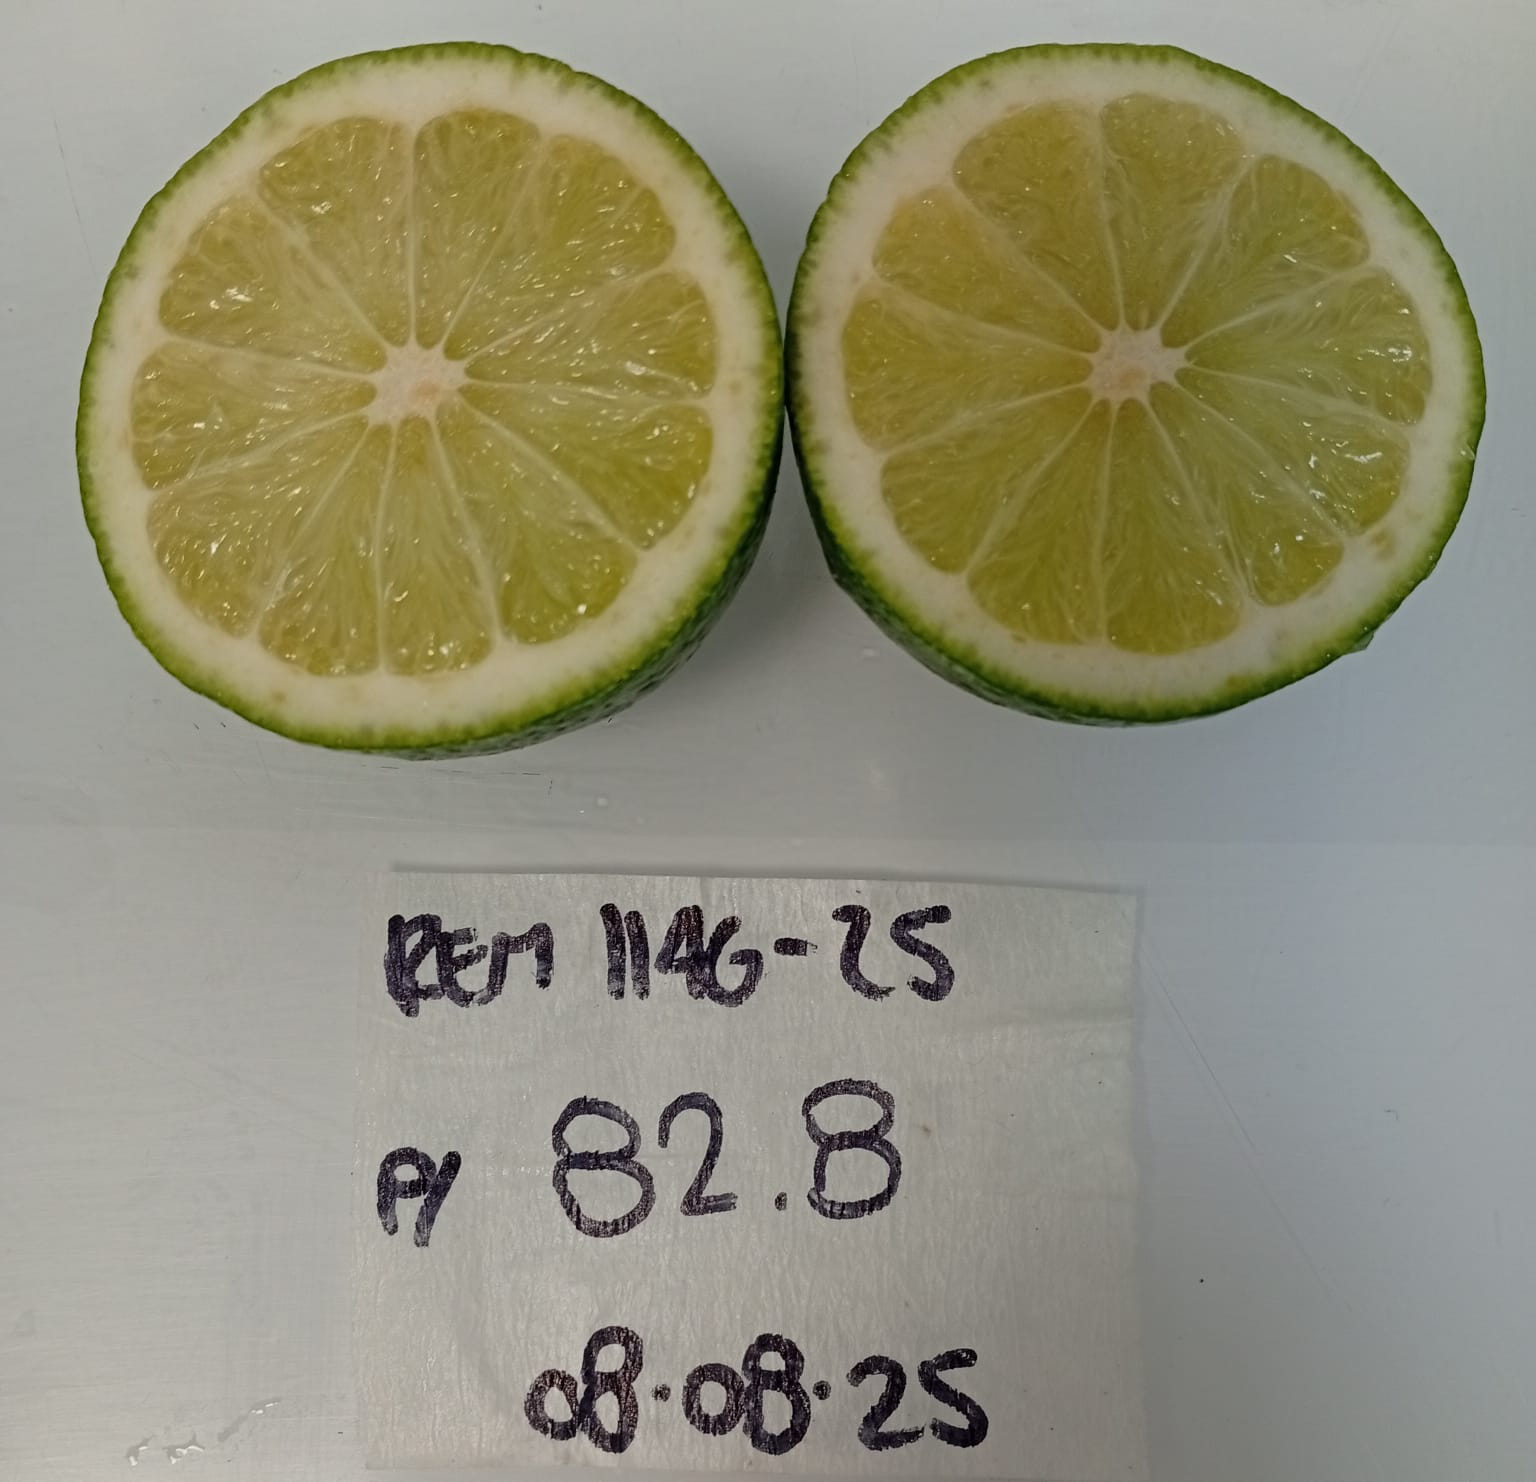 REM 1146-25
P/ 82.8
08.08.25